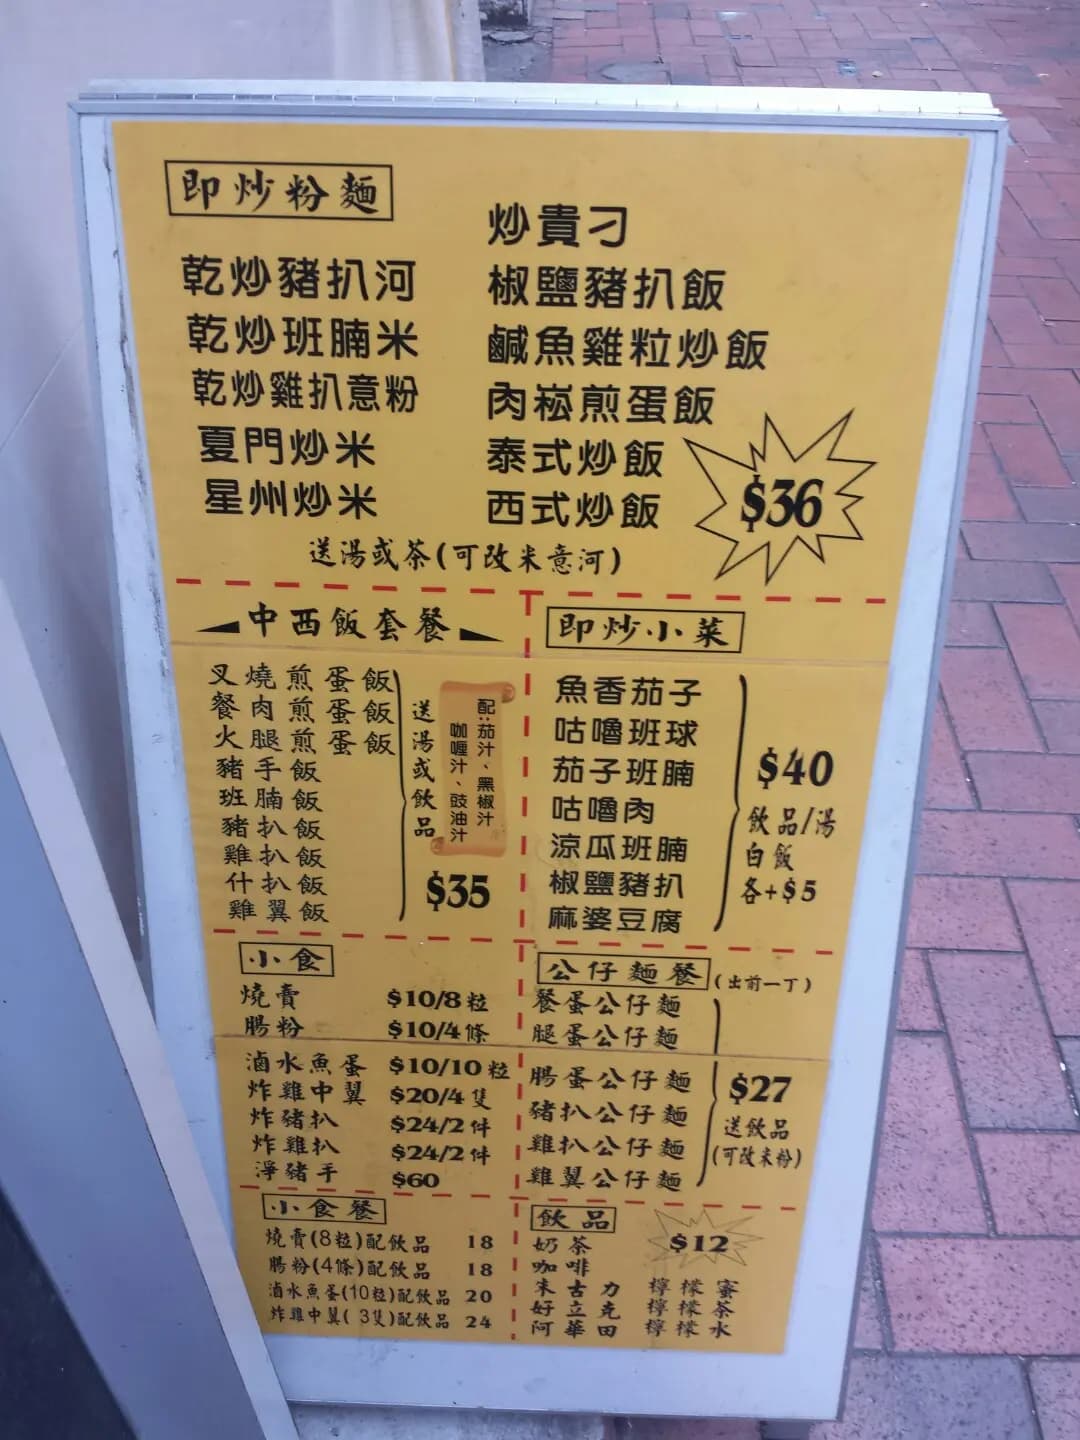 即炒粉麵
乾炒豬扒河
乾炒班腩米
乾炒雞扒意粉
夏門炒米
星州炒米
炒貴刁
椒鹽豬扒飯
鹹魚雞粒炒飯
肉崧煎蛋飯
泰式炒飯
西式炒飯
$36
送湯或茶(可改米意河)
中西飯套餐
叉燒煎蛋飯
餐肉煎蛋飯
火腿煎蛋飯
豬手飯
班腩飯
豬扒飯
雞扒飯
什扒飯
雞翼飯
送湯或飲品
配:茄汁、黑椒汁
咖喱汁、豉油汁
$35
即炒小菜
魚香茄子
咕嚕班球
茄子班腩
咕嚕肉
涼瓜班腩
椒鹽豬扒
麻婆豆腐
$40
飲品/湯
白飯
各+$5
小食
燒賣 $10/8粒
腸粉 $10/4條
滷水魚蛋 $10/10粒
炸雞中翼 $20/4隻
炸豬扒 $24/2件
炸雞扒 $24/2件
淨豬手 $60
公仔麵餐(出前一丁)
餐蛋公仔麵
腿蛋公仔麵
腸蛋公仔麵
豬扒公仔麵
雞扒公仔麵
雞翼公仔麵
$27
送飲品
(可改米粉)
小食餐
燒賣(8粒)配飲品 18
腸粉(4條)配飲品 18
滷水魚蛋(10粒)配飲品 20
炸雞中翼(3隻)配飲品 24
飲品
$12
奶茶
咖啡
朱古力 檸檬蜜
好立克 檸檬茶
阿華田 檸檬水